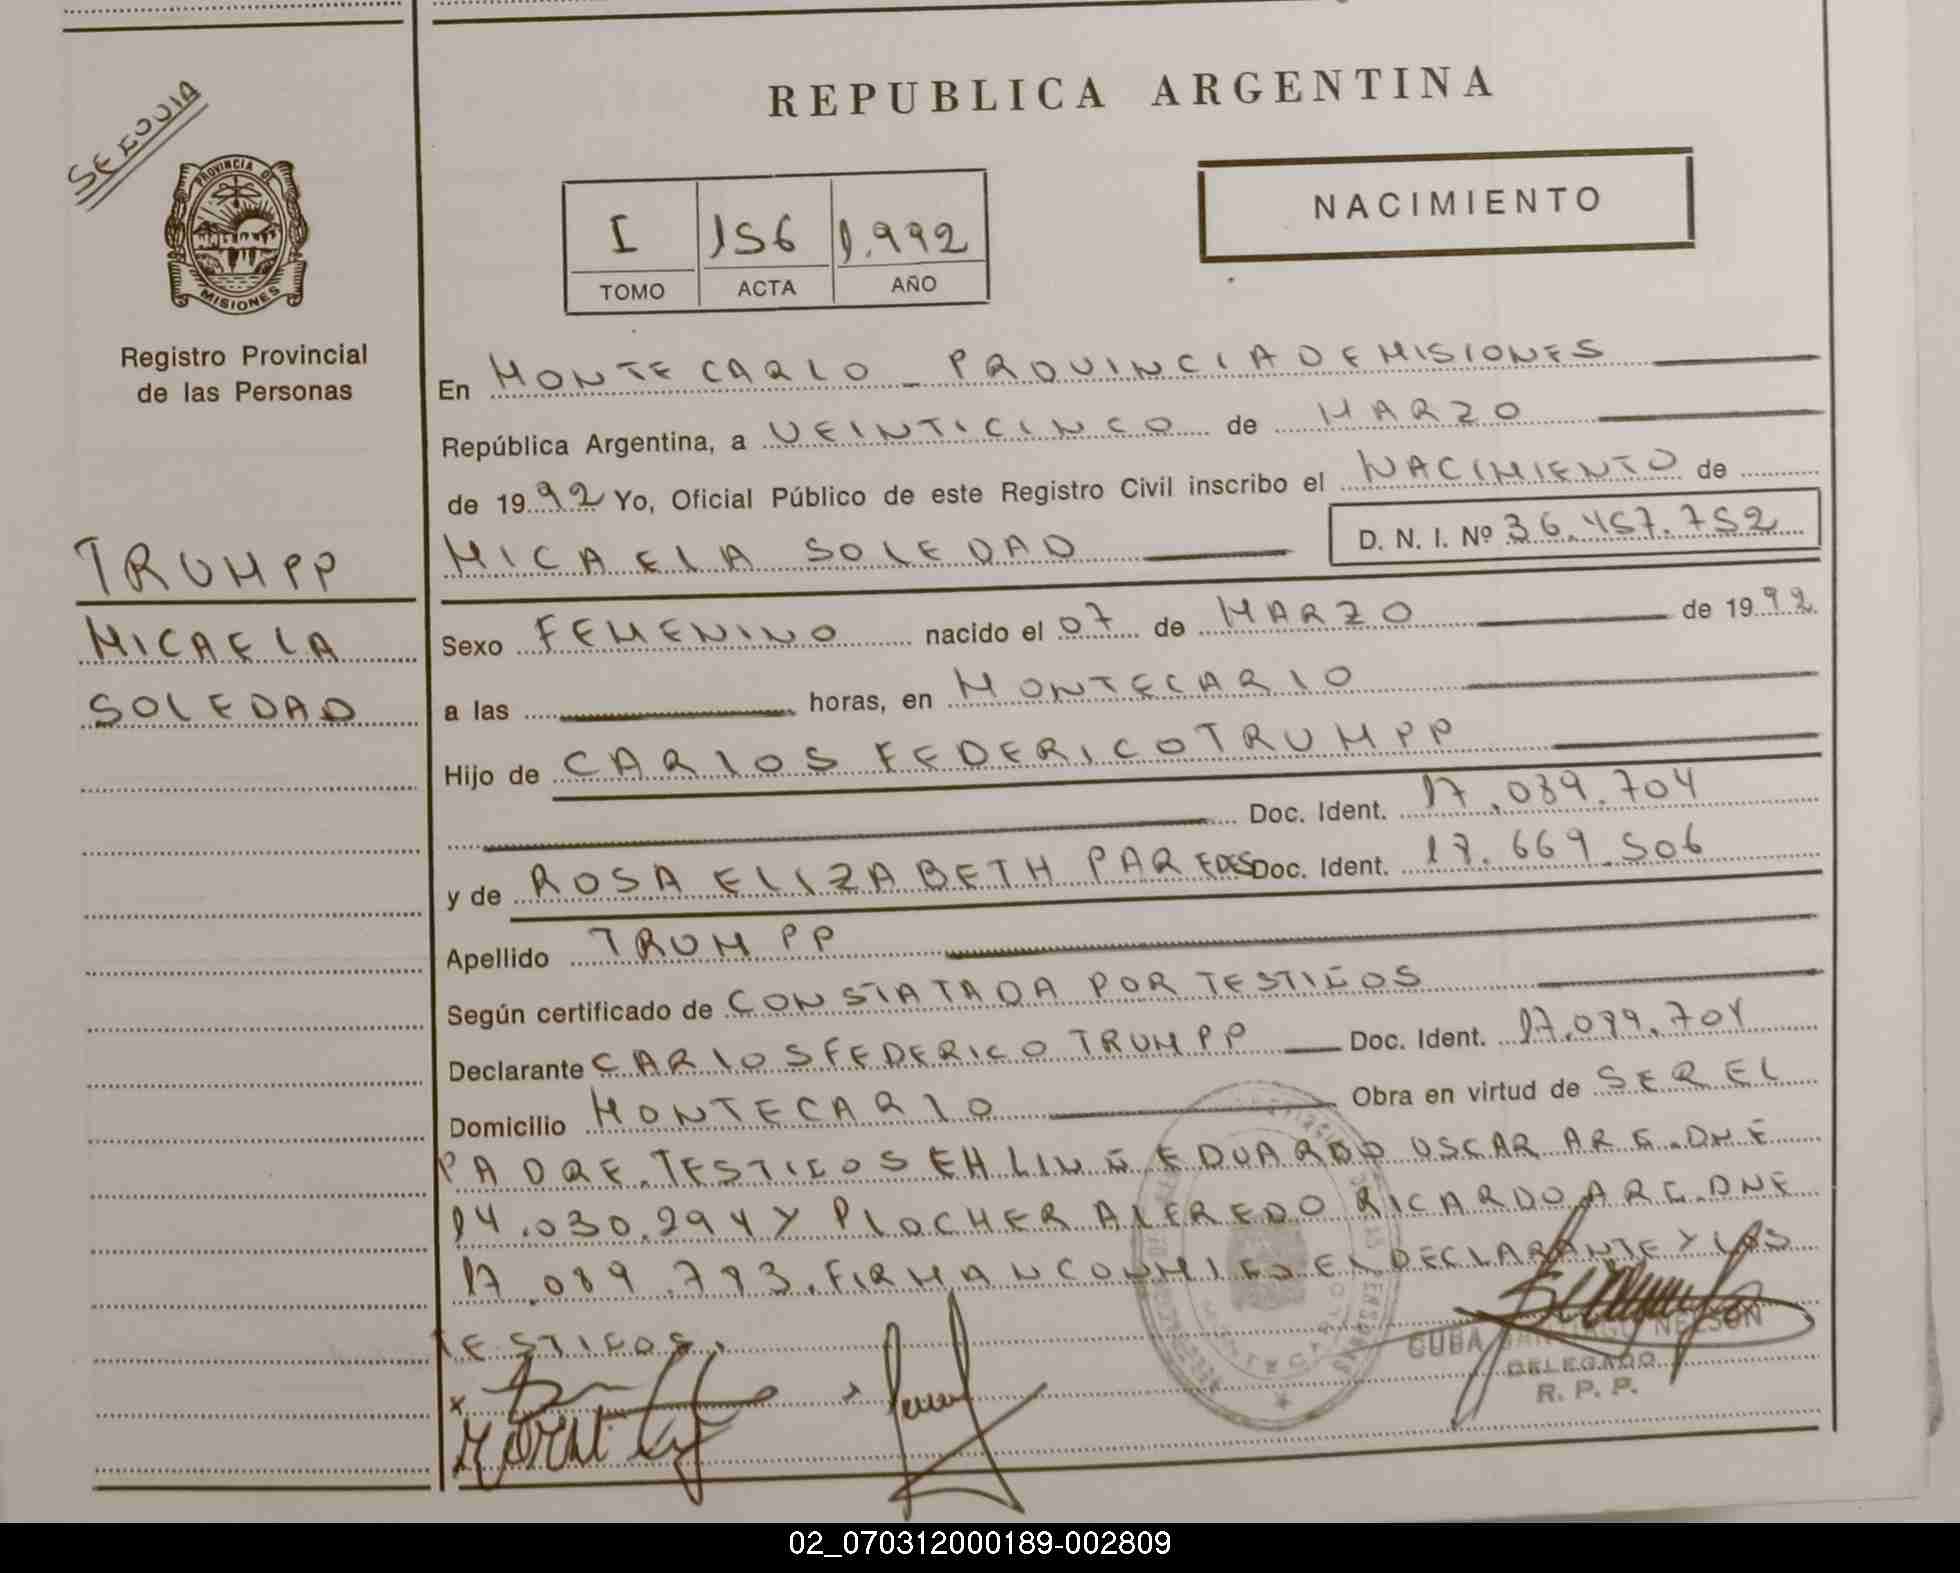 REPUBLICA ARGENTINA
SEEOUIA
PROVINCIA DE
MISIONES
Registro Provincial
de las Personas
NACIMIENTO
I 156 1.992
TOMO ACTA AÑO
En MONTE CARLO - PROVINCIA DE MISIONES
República Argentina, a VEINTICINCO de MARZO
de 1992 Yo, Oficial Público de este Registro Civil inscribo el NACIMIENTO de
MICAELA SOLEDAD D. N. I. Nº 36.457.752
TRUMPP
MICAELA
SOLEDAD
Sexo FEMENINO nacido el 07 de MARZO de 1992
a las horas, en MONTECARLO
Hijo de CARLOS FEDERICO TRUMPP
Doc. Ident. 17.039.704
y de ROSA ELIZABETH PAREDES Doc. Ident. 17.669.506
Apellido TRUMPP
Según certificado de CONSTATADA POR TESTIGOS
Declarante CARLOS FEDERICO TRUMPP Doc. Ident. 17.039.704
Domicilio MONTECARLO Obra en virtud de SER EL
PADRE. TESTIGOS EHLING EDUARDO OSCAR ARG. DNE
14.030.294 Y PLOCHER ALFREDO RICARDO ARG. DNE
17.039.793. FIRMAN CONMIGO EL DECLARANTE Y LOS
TESTIGOS.
CUBA SANTIAGO NELSON
DELEGADO
R. P. P.
02_070312000189-002809